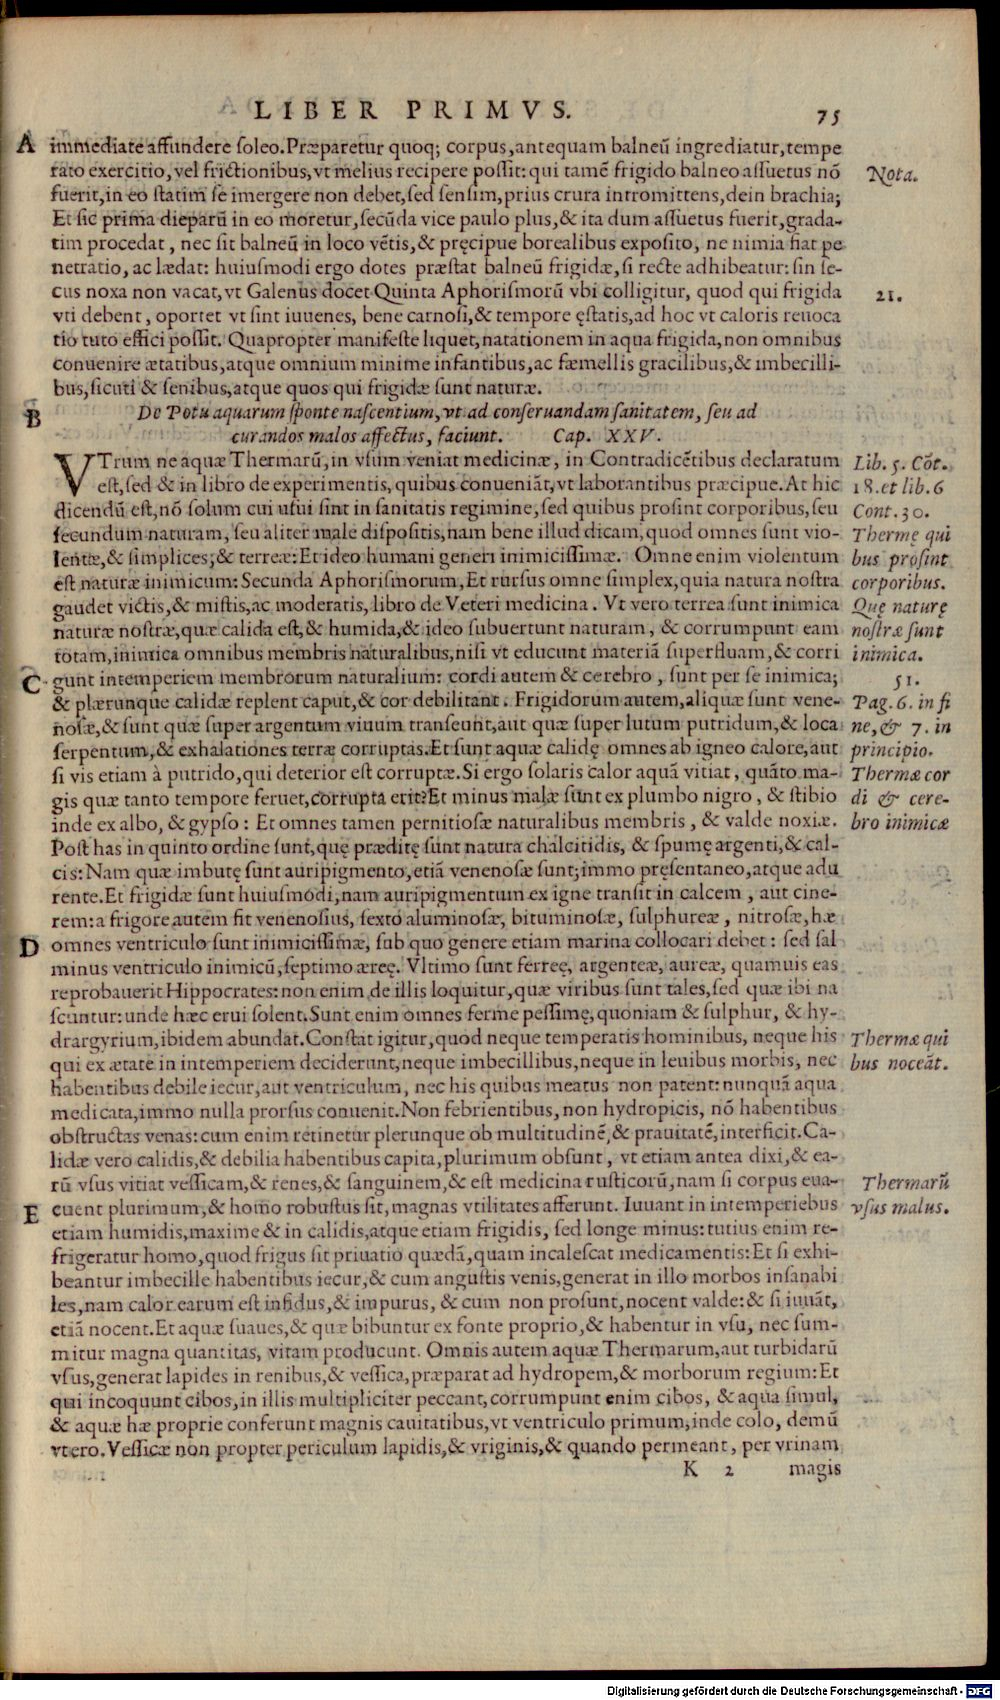 LIBER PRIMVS. 75
A immediate affundere soleo. Præparetur quoq; corpus, antequam balneũ ingrediatur, tempe
rato exercitio, vel frictionibus, vt melius recipere possit: qui tamẽ frigido balneo assuetus nõ Nota.
fuerit, in eo statim se imergere non debet, sed sensim, prius crura intromittens, dein brachia;
Et sic prima die parũ in eo moretur, secũda vice paulo plus, & ita dum assuetus fuerit, grada-
tim procedat, nec sit balneũ in loco vẽtis, & pręcipue borealibus exposito, ne nimia fiat pe
netratio, ac lædat: huiusmodi ergo dotes præstat balneũ frigidæ, si recte adhibeatur: sin se-
cus noxa non vacat, vt Galenus docet Quinta Aphorismorũ vbi colligitur, quod qui frigida 21.
vti debent, oportet vt sint iuuenes, bene carnosi, & tempore ęstatis, ad hoc vt caloris reuoca
tio tuto effici possit. Quapropter manifeste liquet, natationem in aqua frigida, non omnibus
conuenire ætatibus, atque omnium minime infantibus, ac fæmellis gracilibus, & imbecilli-
bus, sicuti & senibus, atque quos qui frigidæ sunt naturæ.
B De Potu aquarum sponte nascentium, vt ad conseruandam sanitatem, seu ad
curandos malos affectus, faciunt. Cap. XXV.
VTrum ne aquæ Thermarũ, in vsum veniat medicinæ, in Contradicẽtibus declaratum Lib. 5. Cõt.
est, sed & in libro de experimentis, quibus conueniãt, vt laborantibus præcipue. At hic 18. et lib. 6
dicendũ est, nõ solum cui vsui sint in sanitatis regimine, sed quibus prosint corporibus, seu Cont. 30.
secundum naturam, seu aliter male dispositis, nam bene illud dicam, quod omnes sunt vio- Thermę qui
lentæ, & simplices, & terreæ: Et ideo humani generi inimicissimæ. Omne enim violentum bus prosint
est naturæ inimicum: Secunda Aphorismorum, Et rursus omne simplex, quia natura nostra corporibus.
gaudet victis, & mistis, ac moderatis, libro de Veteri medicina. Vt vero terrea sunt inimica Quę naturę
naturæ nostræ, quæ calida est, & humida, & ideo subuertunt naturam, & corrumpunt eam nostræ sunt
totam, inimica omnibus membris naturalibus, nisi vt educunt materiã superfluam, & corri inimica.
C gunt intemperiem membrorum naturalium: cordi autem & cerebro, sunt per se inimica; 51.
& plærunque calidæ replent caput, & cor debilitant. Frigidorum autem, aliquæ sunt vene- Pag. 6. in fi
nosæ, & sunt quæ super argentum viuum transeunt, aut quæ super lutum putridum, & loca ne, & 7. in
serpentum, & exhalationes terræ corruptas. Et sunt aquæ calidę omnes ab igneo calore, aut principio.
si vis etiam à putrido, qui deterior est corruptæ. Si ergo solaris calor aquã vitiat, quãto ma- Thermæ cor
gis quæ tanto tempore feruet, corrupta erit? Et minus malæ sunt ex plumbo nigro, & stibio di & cere-
inde ex albo, & gypso: Et omnes tamen pernitiosæ naturalibus membris, & valde noxiæ. bro inimicæ
Post has in quinto ordine sunt, quę præditę sunt natura chalcitidis, & spumę argenti, & cal-
cis: Nam quæ imbutę sunt auripigmento, etiã venenosæ sunt; immo pręsentaneo, atque adu
rente. Et frigidæ sunt huiusmodi, nam auripigmentum ex igne transit in calcem, aut cine-
rem: a frigore autem fit venenosius, sexto aluminosæ, bituminosæ, sulphureæ, nitrosæ, hæ
D omnes ventriculo sunt inimicissimæ, sub quo genere etiam marina collocari debet: sed sal
minus ventriculo inimicũ, septimo æreę. Vltimo sunt ferreę, argenteæ, aureæ, quamuis eas
reprobauerit Hippocrates: non enim de illis loquitur, quæ viribus sunt tales, sed quæ ibi na
scuntur: unde hæc erui solent. Sunt enim omnes ferme pessimę, quoniam & sulphur, & hy-
drargyrium, ibidem abundat. Constat igitur, quod neque temperatis hominibus, neque his Thermæ qui
qui ex ætate in intemperiem deciderunt, neque imbecillibus, neque in leuibus morbis, nec bus noceãt.
habentibus debile iecur, aut ventriculum, nec his quibus meatus non patent: nunquã aqua
medicata, immo nulla prorsus conuenit. Non febrientibus, non hydropicis, nõ habentibus
obstructas venas: cum enim retinetur plerunque ob multitudinẽ, & prauitatẽ, interficit. Ca-
lidæ vero calidis, & debilia habentibus capita, plurimum obsunt, vt etiam antea dixi, & ea-
rũ vsus vitiat vessicam, & renes, & sanguinem, & est medicina rusticorũ, nam si corpus eua- Thermarũ
E cuent plurimum, & homo robustus sit, magnas vtilitates afferunt. Iuuant in intemperiebus vsus malus.
etiam humidis, maxime & in calidis, atque etiam frigidis, sed longe minus: tutius enim re-
frigeratur homo, quod frigus sit priuatio quædã, quam incalescat medicamentis: Et si exhi-
beantur imbecille habentibus iecur, & cum angustis venis, generat in illo morbos insanabi
les, nam calor earum est infidus, & impurus, & cum non prosunt, nocent valde: & si iuuãt,
etiã nocent. Et aquæ suaues, & quæ bibuntur ex fonte proprio, & habentur in vsu, nec sum-
mitur magna quantitas, vitam producunt. Omnis autem aquæ Thermarum, aut turbidarũ
vsus, generat lapides in renibus, & vessica, præparat ad hydropem, & morborum regium: Et
qui incoquunt cibos, in illis multipliciter peccant, corrumpunt enim cibos, & aqua simul,
& aquæ hæ proprie conferunt magnis cauitatibus, vt ventriculo primum, inde colo, demũ
vtero. Vessicæ non propter periculum lapidis, & vriginis, & quando permeant, per vrinam
K 2 magis
Digitalisierung gefördert durch die Deutsche Forschungsgemeinschaft - DFG